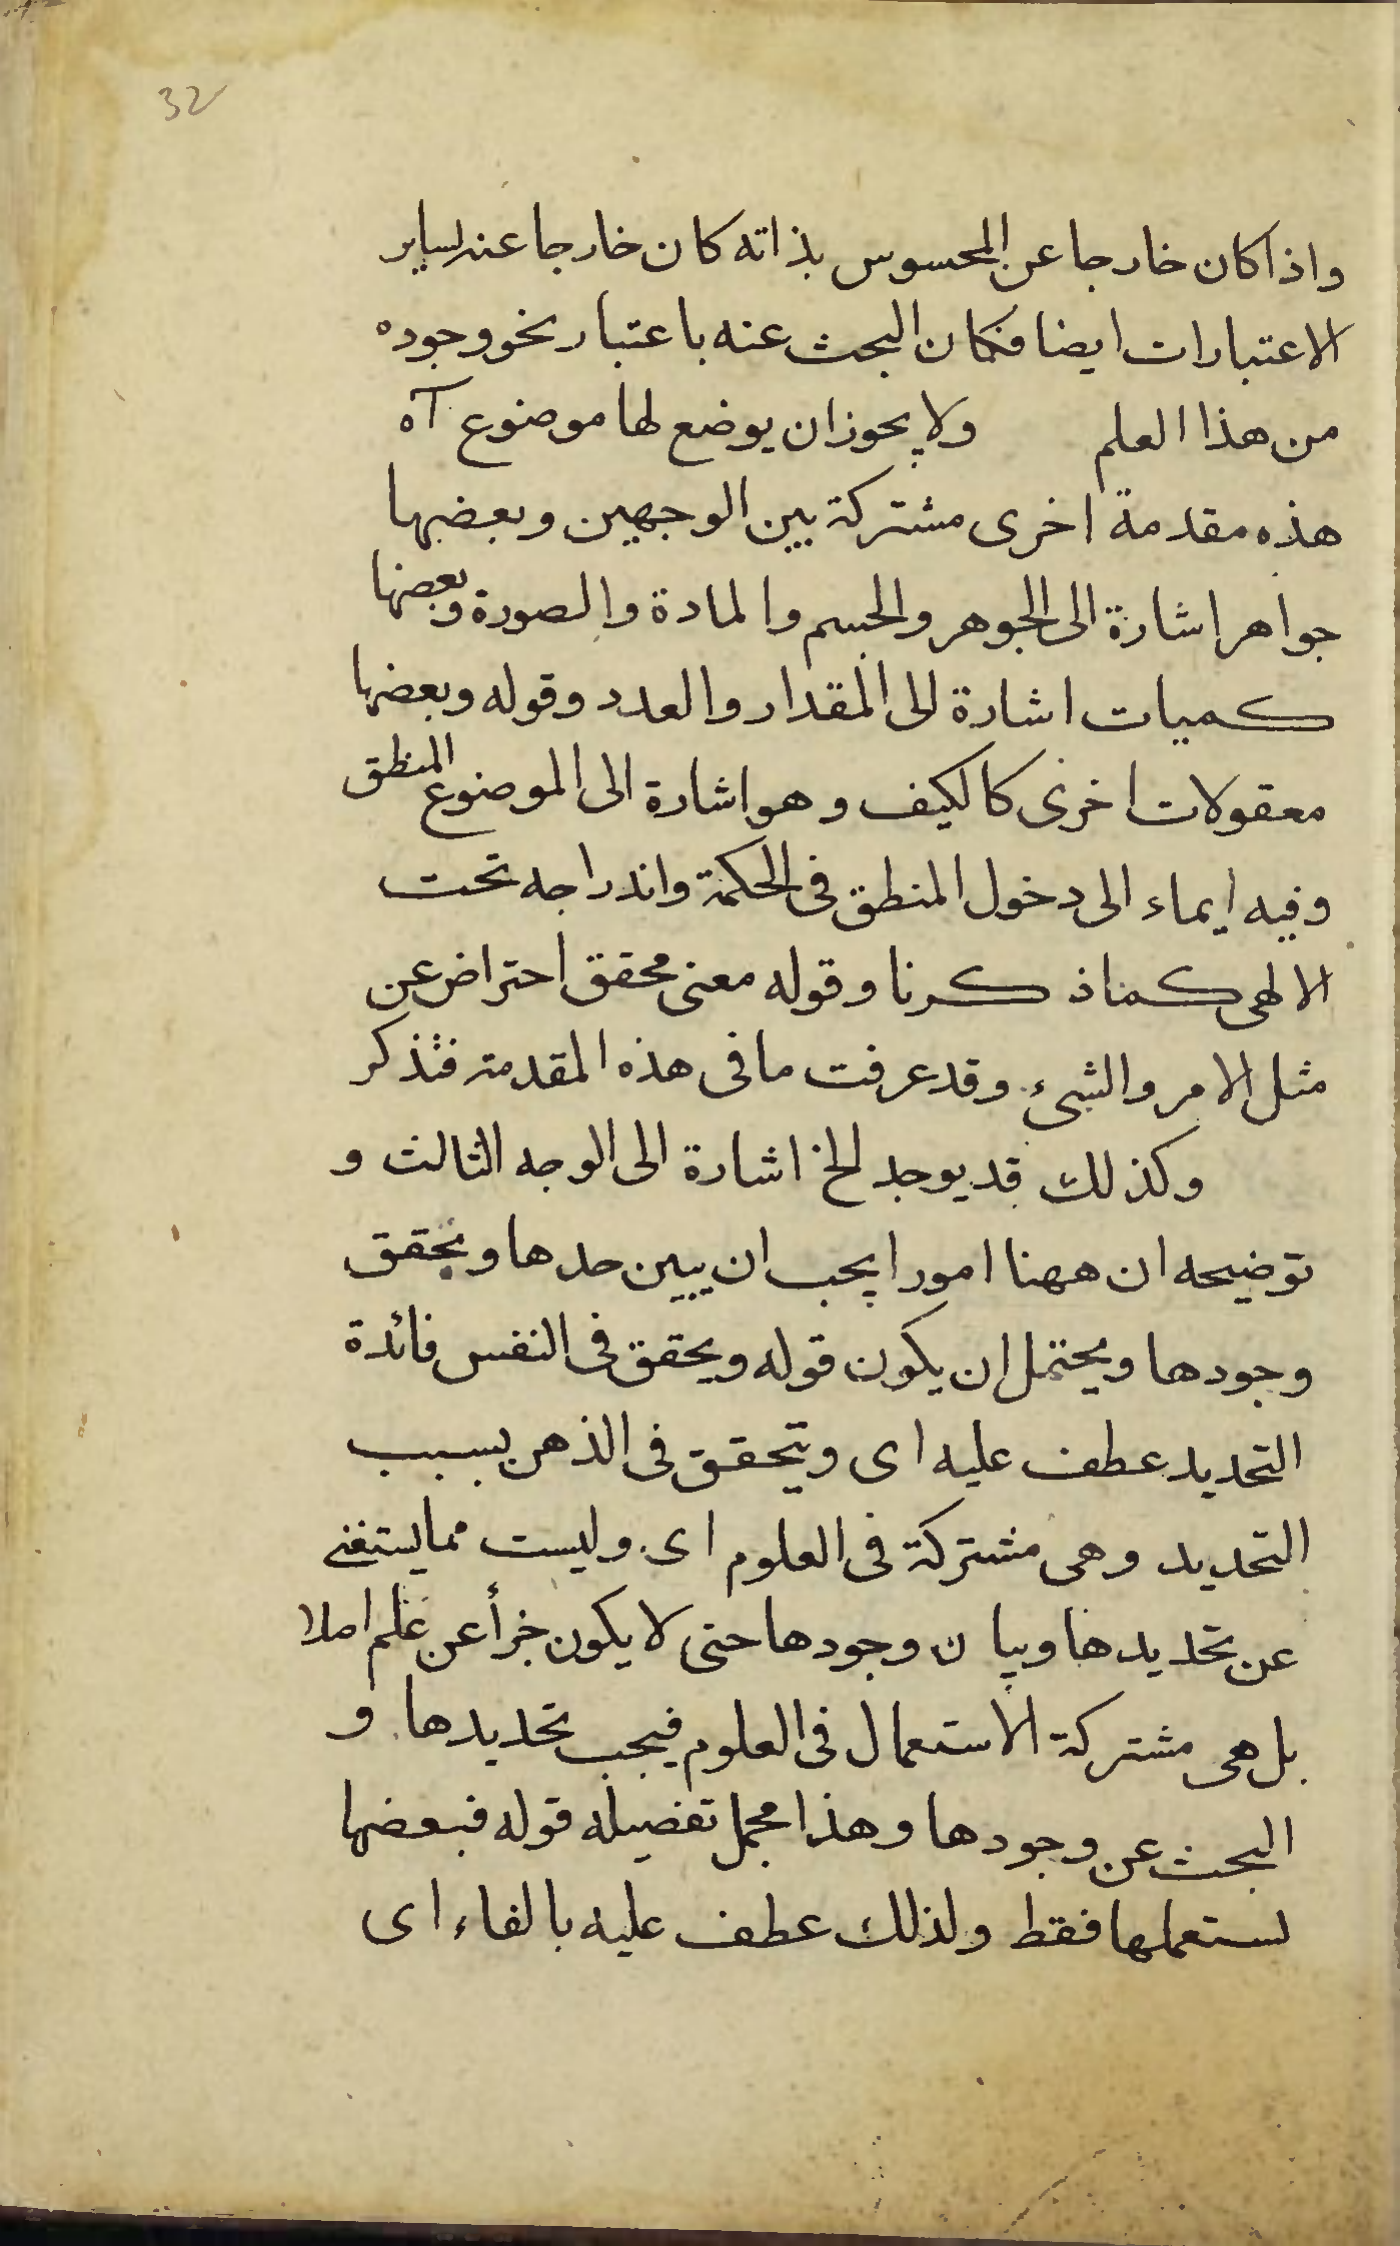 32
واذا كان خارجا عن المحسوس بذاته كان خارجا عنه بساير
الاعتبارات ايضا فكان البحث عنه باعتبار نحو وجوده
من هذا العلم ولا يجوز ان يوضع لها موضوع آه
هذه مقدمة اخرى مشتركة بين الوجهين وبعضها
جواهر اشارة الى الجوهر والجسم والمادة والصورة وبعضها
كميات اشارة الى المقدار والعدد وقوله وبعضها
معقولات اخرى كالكيف وهو اشارة الى الموضوع المنطق
وفيه ايماء الى دخول المنطق فى الحكمة واندراجه تحت
الالهى كمنا ذكرنا وقوله معنى محقق احتراض عن
مثل الامر والشىء وقد عرفت ما فى هذه المقدمة فتذكر
وكذلك قد يوجد الخ اشارة الى الوجه الثالث و
توضيحه ان ههنا امورا يجب ان يبين حدها ويحقق
وجودها ويحتمل ان يكون قوله ويحقق فى النفس فائدة
التحديد عطف عليه اى ويتحقق فى الذهن بسبب
التحديد وهى مشتركة فى العلوم اى وليست مما يستغنى
عن تحديدها وبيان وجودها حتى لا يكون جزأ عن علم اصلا
بل هى مشتركة الاستعمال فى العلوم فيجب تحديدها و
البحث عن وجودها وهذا مجمل تفصيله قوله فبعضها
يستعملها فقط ولذلك عطف عليه بالفاء اى